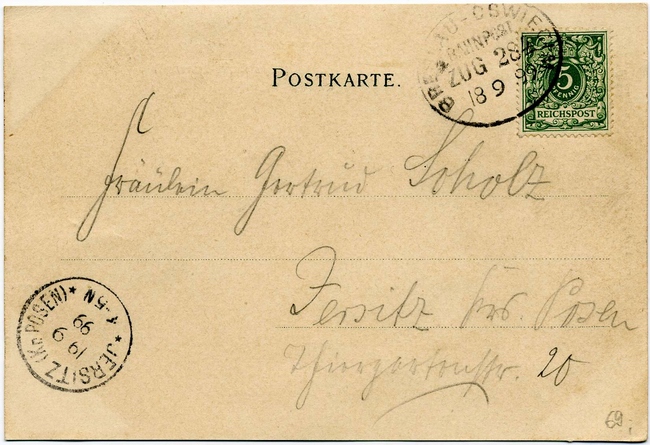 BRESLAU-OSWIECIM
BAHNPOST
ZUG 284
18 9 99
5
PFENNIG
REICHSPOST
POSTKARTE.
Fräulein Gertrud Scholz
Jersitz Krs. Posen
Thiergartenstr. 20
* JERSITZ (Kr. POSEN) *
19 9
99
4-5N
69.